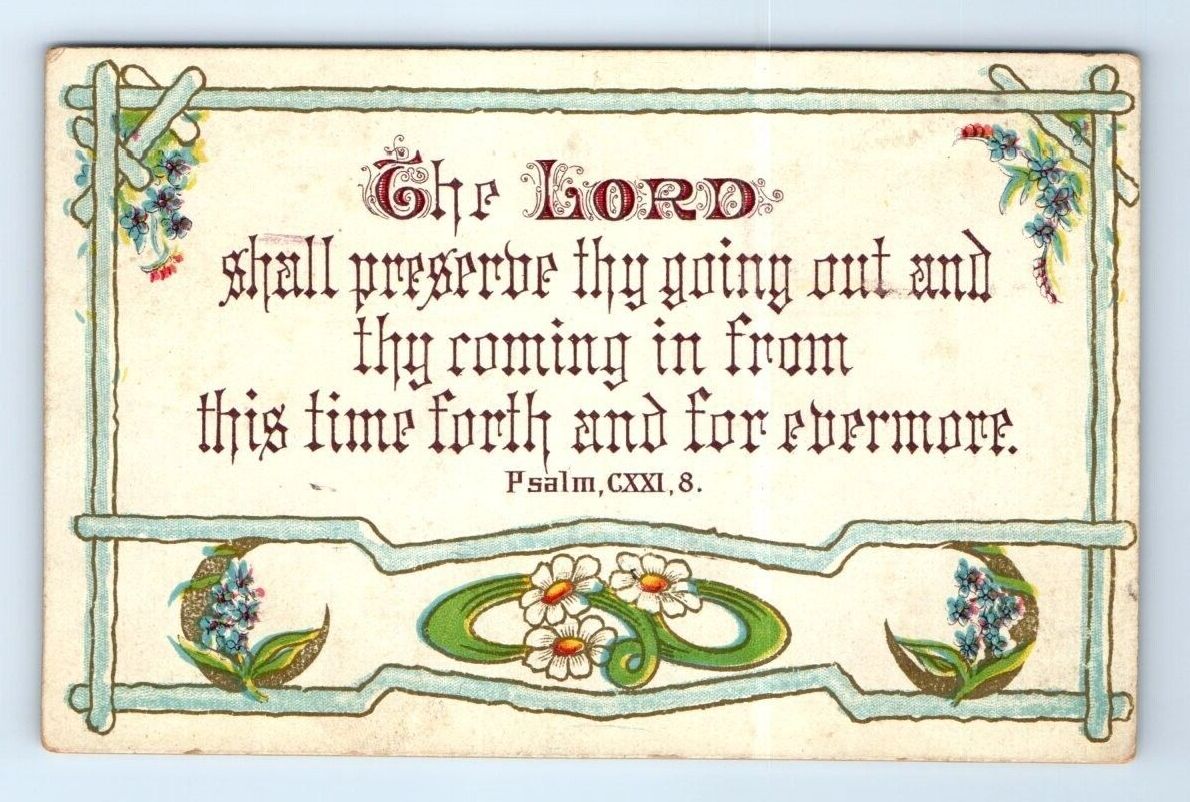 The LORD
shall preserve thy going out and
thy coming in from
this time forth and for evermore.
Psalm, CXXI, 8.